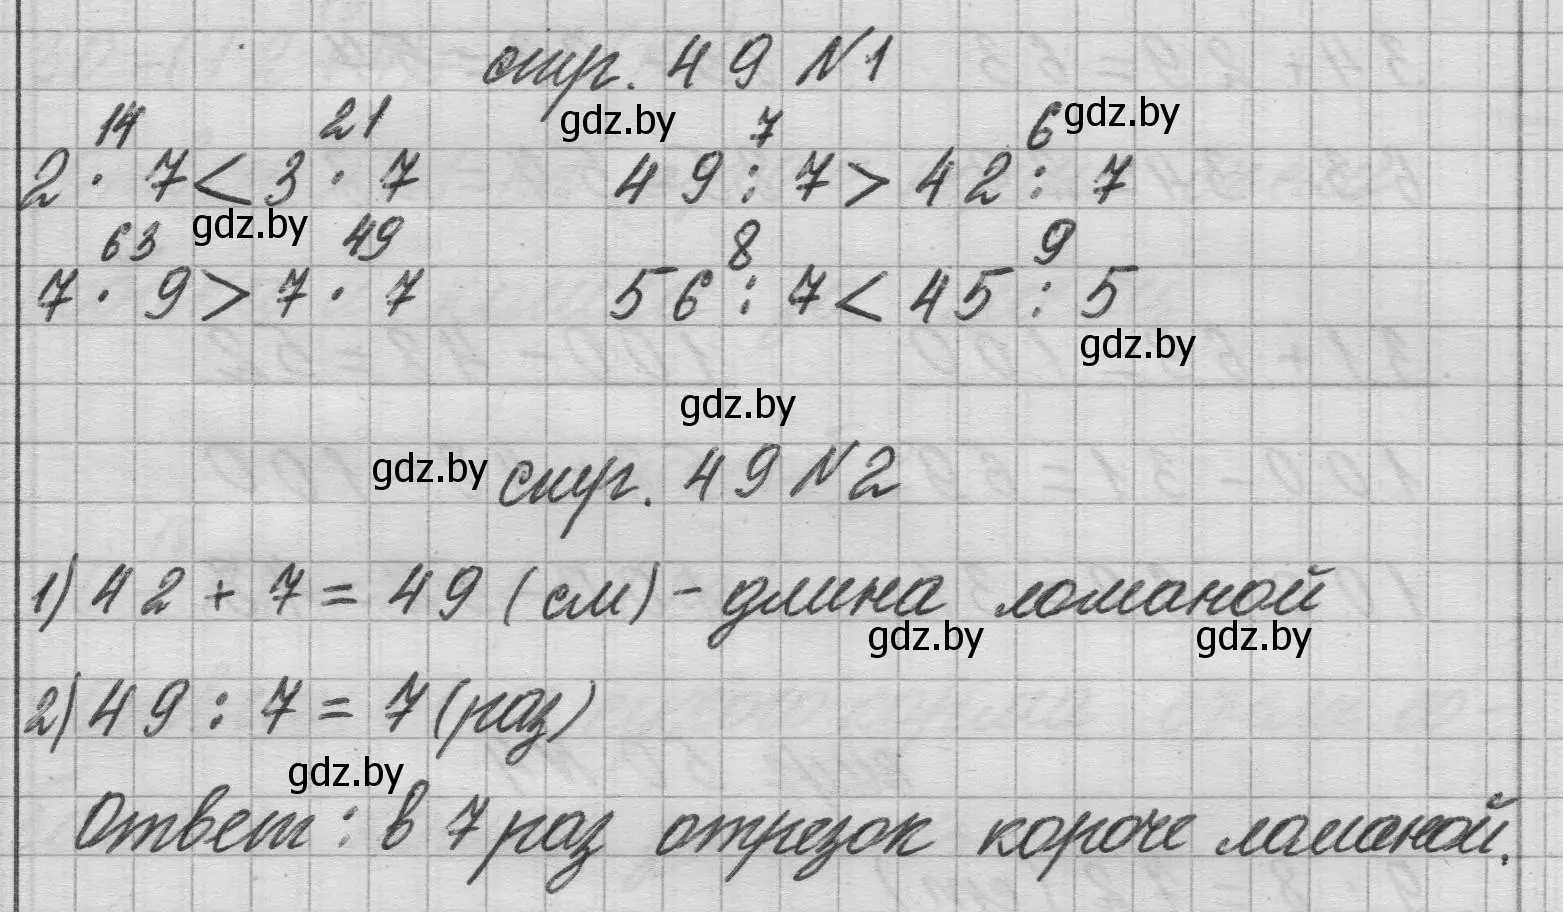 стр. 49 №1
14 21 gdz.by 7 6 gdz.by
2 · 7 < 3 · 7 49 : 7 > 42 : 7
63 gdz.by 49 8 9
7 · 9 > 7 · 7 56 : 7 < 45 : 5
gdz.by
gdz.by
gdz.by стр. 49 №2
1) 42 + 7 = 49 (см) - длина ломаной
gdz.by gdz.by
2) 49 : 7 = 7 (раз)
gdz.by
Ответ: в 7 раз отрезок короче ломаной.